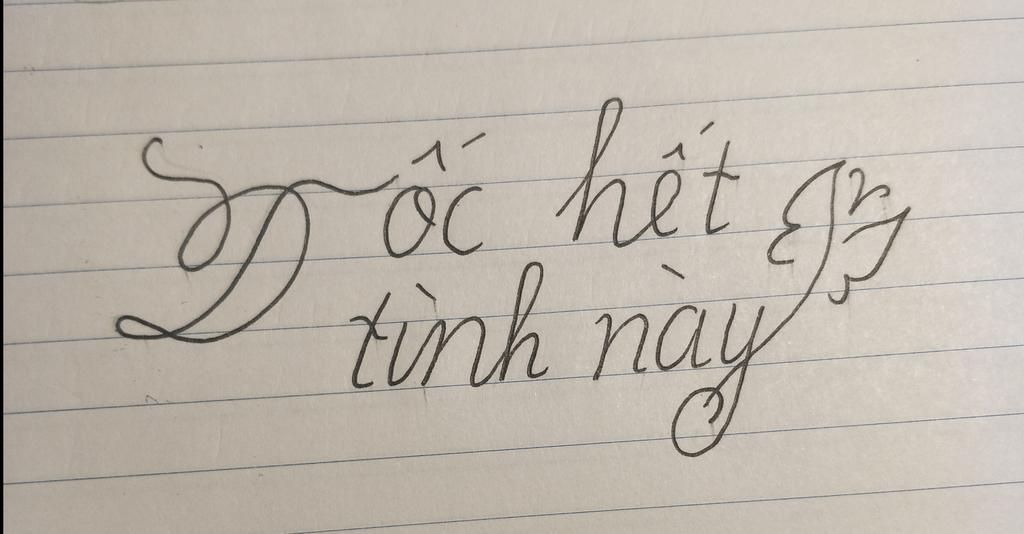 Dốc hết
tình này